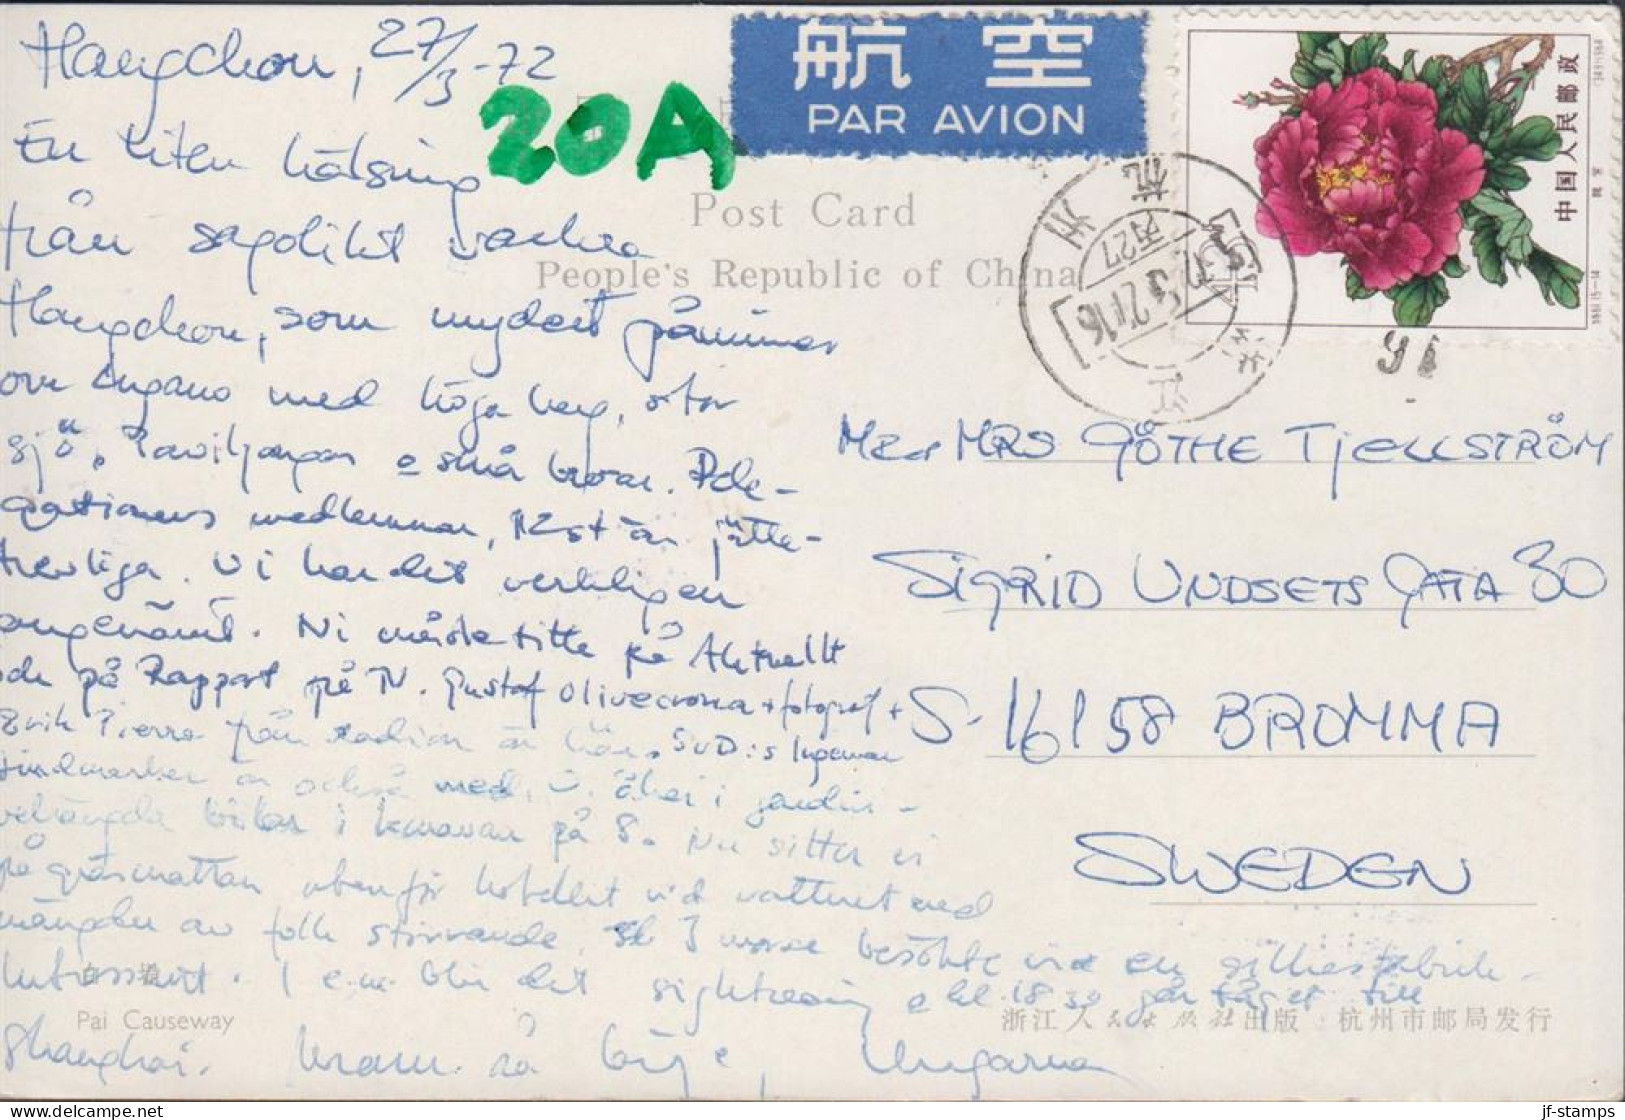 Hangchou, 27/3-72
20A
航空
PAR AVION
中国人民邮政
Post Card
People's Republic of China
En liten hälsning
från sagolikt vackra
Hangchou, som mycket påminner
om Lugano med höga berg, stor
sjö, Paviljonger o små broar. Dele-
gationens medlemmar, 12 st är jätte-
trevliga. Vi har det verkligen
angenämt. Ni måste titta på Aktuellt
och på Rapport på TV. Gustaf Olivecrona + fotograf +
Erik Pierre från radion är här. SvD:s Ingemar
Lindmarker är också med. Vi åker i gardin-
behängda bilar i karavan på 8. Nu sitter vi
på gräsmattan utanför hotellet vid vattnet med
mängder av folk stirrande. I morse besökte vi en silkesfabrik-
Intressant. I e.m. blir det sightseeing o kl. 18 30 går tåget till
Shanghai. Kram
Mr & MRS GÖTHE TJELLSTRÖM
SIGRID UNDSETS GATA 30
S-16158 BROMMA
SWEDEN
16
Pai Causeway
浙江人民出版社出版 杭州市邮局发行
jf-stamps